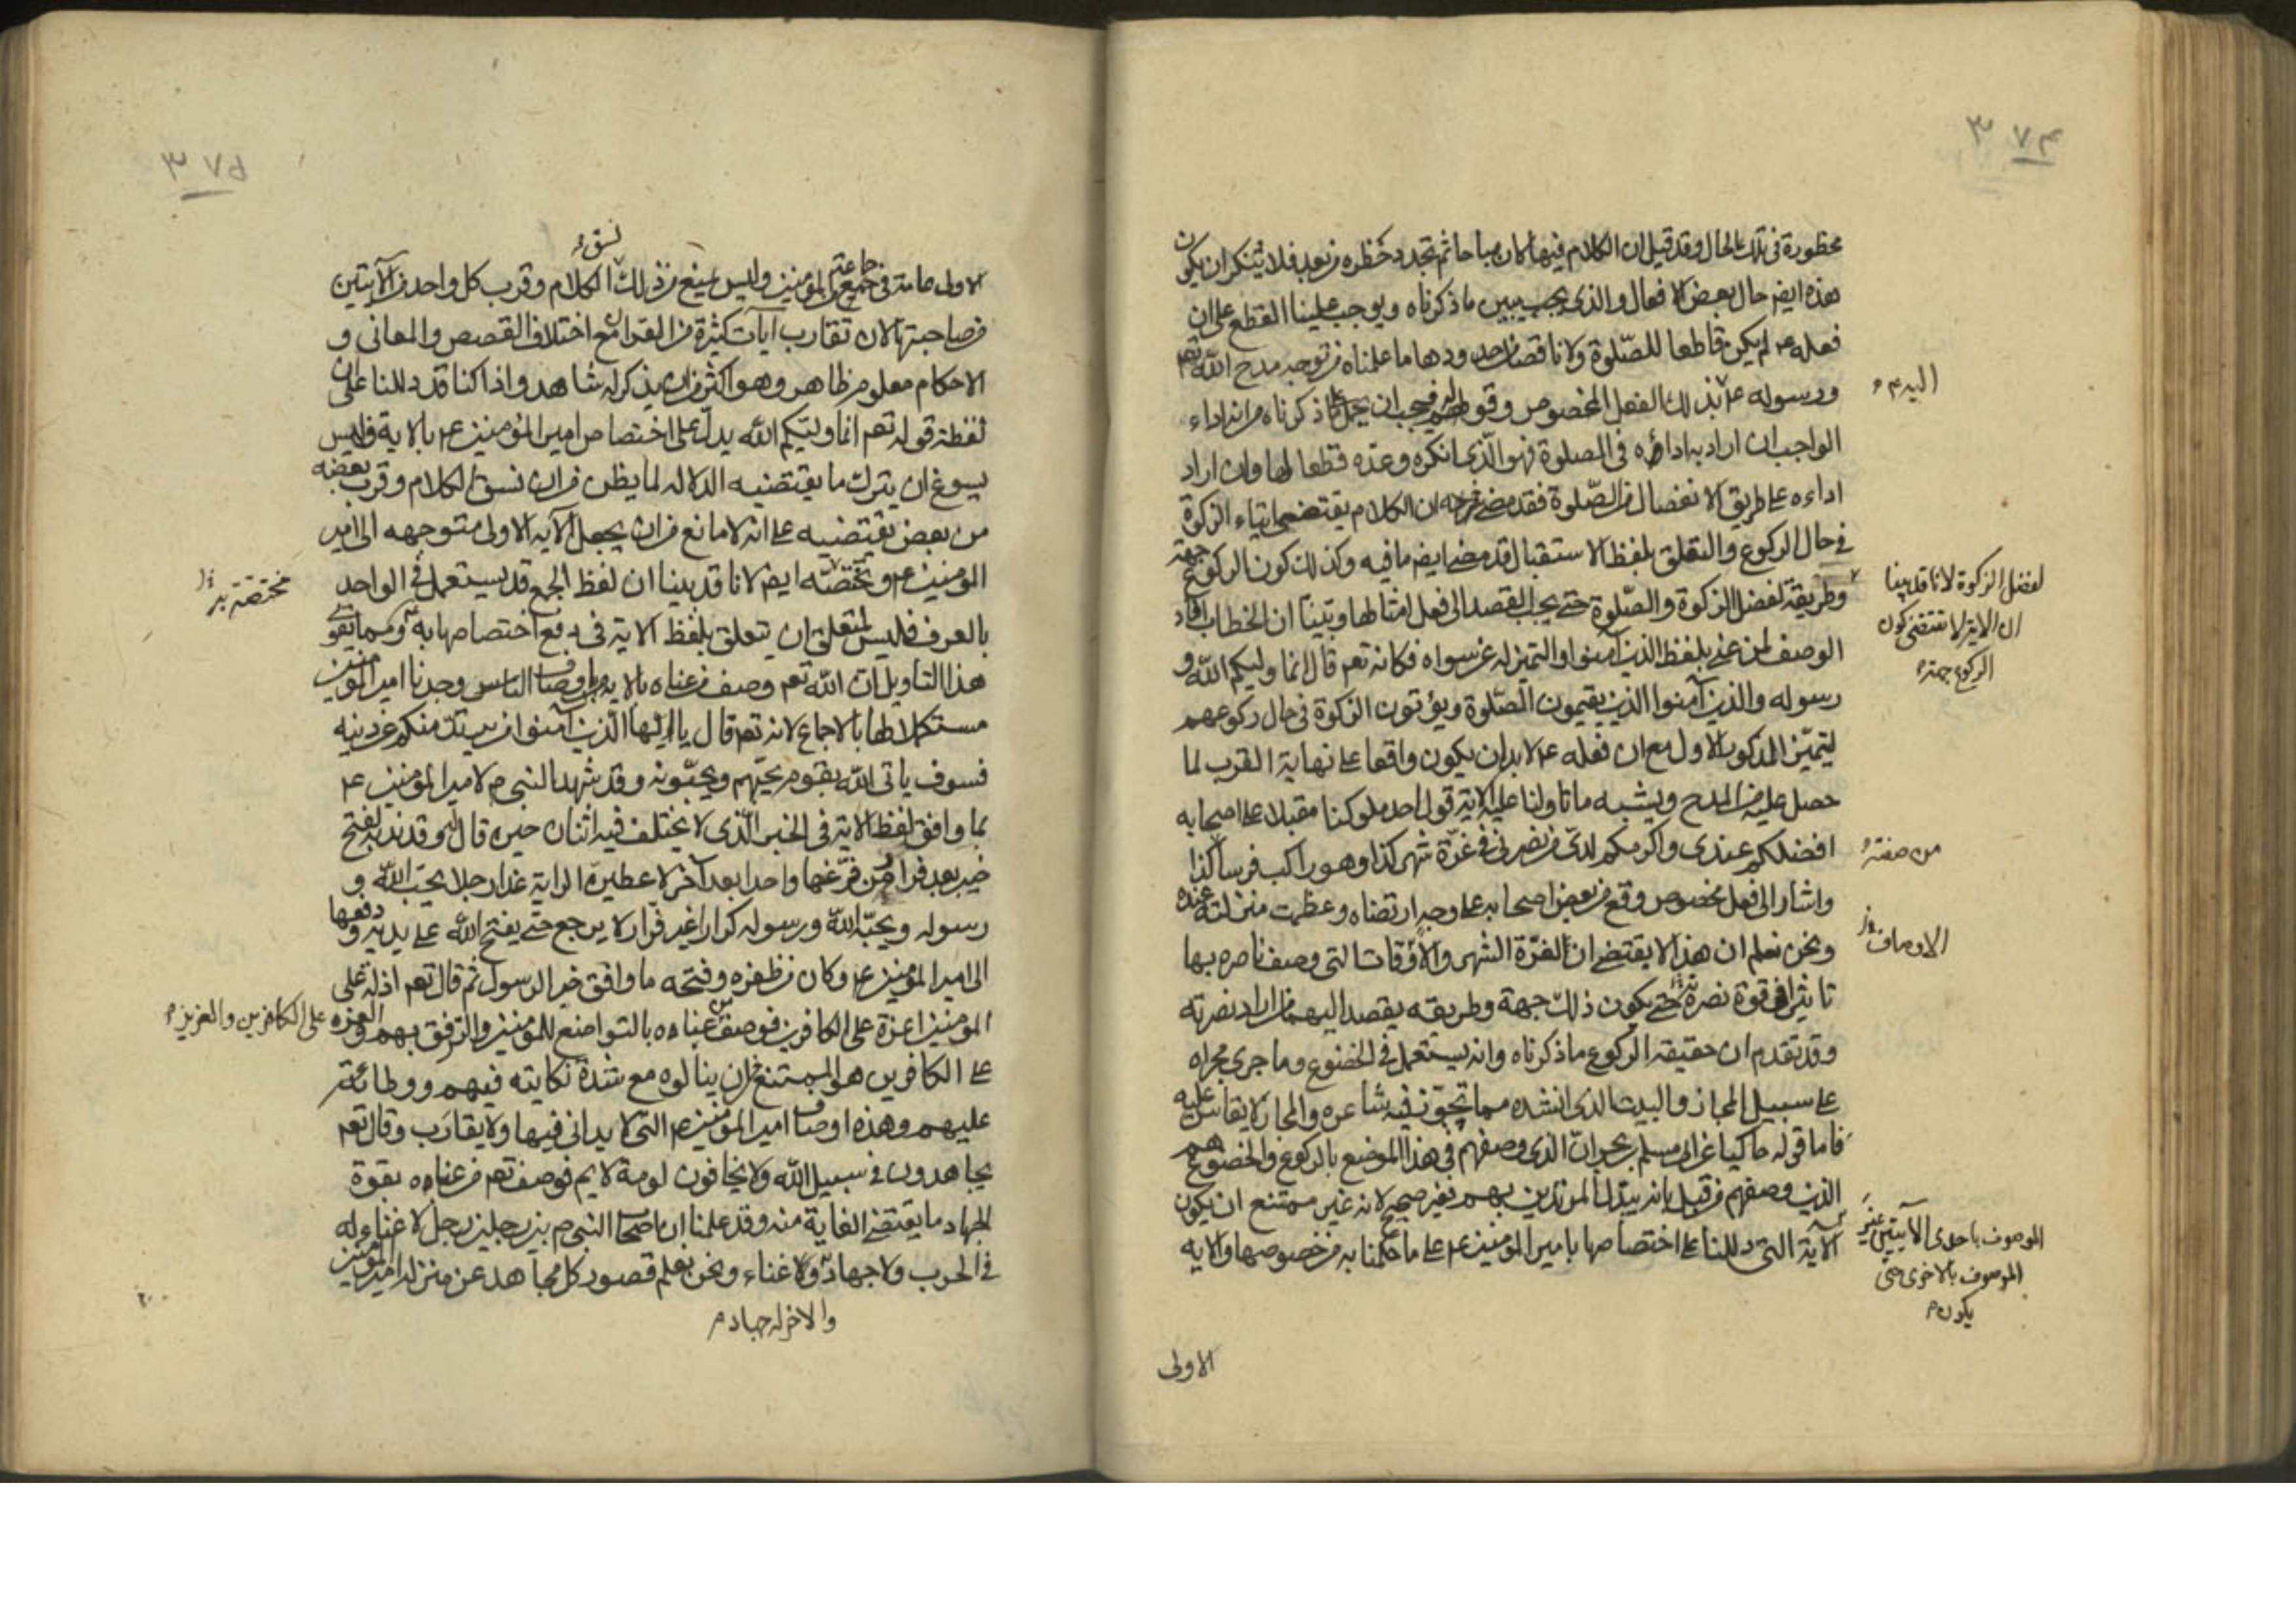 ٣٧٤
محظورة في تلك الحال وقد قيل ان الكلام فيها كان مباحا ثم تجدد حظره من بعد فلا ينكر ان يكون
هذه ايضا حال بعض الافعال والذي يجب يبين ما ذكرناه ويوجب علينا القطع على ان
فعله عم لم يكن قاطعا للصّلوة ولا ناقصا من حدودها ما علمناه من توجه مدح الله تعم
ورسوله عم بذلك الفعل المخصوص وقولهم فيجب ان يحمل على ما ذكرناه من انه اداء
اليه م
الواجب ان اراد به اداؤه في الصلوة فهو الّذي انكره وعدّه قطعا لها وان اراد
اداءه على طريق الانفصال من الصّلوة فقد مضى ان الكلام يقتضي ايتاء الزكوة
في حال الركوع والتعلق بلفظ الاستقبال قد مضى ايضا ما فيه وكذلك كون الركوع جهة
وطريقة لفضل الزكوة والصّلوة حتى يجب القصد الى فعل امثالها وبيّنا ان الخطاب افاد
لفضل الزكوة لانا قد بينا
ان الاية لا تقتضي كون
الركوع جهة
الوصف لمن عني بلفظ الذين آمنوا والتميز له عن سواه فكانه تعم قال انما وليكم الله و
رسوله والذين آمنوا الذين يقيمون الصّلوة ويؤتون الزكوة في حال ركوعهم
ليتميّز المذكور الاول مع ان فعله عم لا بد ان يكون واقعا على نهاية القرب لما
حصل عليه من المدح ويشبه ما تاولنا عليه الاية قول احد ملوكنا مقبلا على اصحابه
افضلكم عندي واكرمكم لديّ من نصرني في غرّة شهر كذا وهو راكب فرسا كذا
من صفته
واشار الى فعل مخصوص وقع من بعض اصحابه على وجه ارتضاه وعظمت منزلته عنده
ونحن نعلم ان هذا لا يقتضي ان لغرّة الشهر والاوقات التي وصف ناصره بها
الاوصاف
تاثيرا في قوة نصرته حتى يكون ذلك جهة وطريقه يقصد اليهما من اراد نصرته
وقد تقدم ان حقيقة الركوع ما ذكرناه وانه يستعمل في الخضوع وما جرى مجراه
على سبيل المجاز والبيت الذي انشده مما تجوّز فيه شاعره والمجاز لا يقاس عليه
فاما قوله حاكيا عن ابي مسلم بن بحر ان الّذي وصفهم في هذا الموضع بالركوع والخضوع هم
الذين وصفهم من قبل بانه يبدل المرتدين بهم فغير صحيح لانه غير ممتنع ان يكون
الموصوف باحدى الآيتين غير
الموصوف بالاخرى حتى
يكون م
الآية التي دللنا على اختصاصها بامير المؤمنين عم على ما حكمنا به من خصوصها والاية
الاولى
٣٧٥
نسق
جماعتهم
الاولى عامة في جميع المؤمنين وليس يمنع من ذلك الكلام وقرب كل واحد من الآيتين
من صاحبتها لان تقارب آيات كثيرة من القران مع اختلاف القصص والمعاني و
الاحكام معلوم ظاهر وهو اكثر من ان يذكر له شاهد واذا كنا قد دللنا على ان
لفظة قوله تعم انما وليّكم الله يدل على اختصاص امير المؤمنين عم بالاية فليس
يسوغ ان يترك ما يقتضيه الدلالة لما يظن من ان نسق الكلام وقرب بعضه
من بعض يقتضيه على انه لا مانع من ان يجعل الآية الاولى متوجهه الى امير
المؤمنين عم وتختصّه ايضا لانا قد بينا ان لفظ الجمع قد يستعمل في الواحد
مختصة به
بالعرف فليس لمتعلق ان يتعلق بلفظ الاية في دفع اختصاصها به عم ومما يقوّي
هذا التاويل ان الله تعم وصف من عناه بالاية باوصاف الناس وجدنا امير المؤمنين
مستكملا لها بالاجماع لانه تعم قال يا ايّها الّذين آمنوا من يرتد منكم عن دينه
فسوف ياتي اللّه بقوم يحبّهم ويحبّونه وقد شهد النبي ص لامير المؤمنين عم
بما وافق لفظ الاية في الخبر الّذي لا يختلف فيه اثنان حين قال له وقد ندبه لفتح
خيبر بعد فرار من فرّ عنها واحدا بعد آخر لاعطين الراية غدا رجلا يحبّ اللّه و
رسوله ويحبّه اللّه ورسوله كرارا غير فرار لا يرجع حتى يفتح اللّه على يديه ودفعها
الى امير المؤمنين عم وكان من ظفره وفتحه ما وافق خبر الرسول ثم قال تعم اذلة على
المؤمنين اعزة على الكافرين فوصف من عناه بالتواضع للمؤمنين والرفق بهم والعزه
على الكافرين والعزيز م
على الكافرين هو الممتنع من ان ينالوه مع شدة نكايته فيهم ووطائته
عليهم وهذه اوصاف امير المؤمنين عم التي لا يدانى فيها ولا يقارب وقال تعم
يجاهدون في سبيل اللّه ولا يخافون لومة لايم فوصف تعم من عناه بقوة
الجهاد ما يقتضي الغاية منه وقد علمنا ان اصحاب النبي ص بين رجلين رجل لا غناء له
في الحرب ولا جهاد ولا غناء ونحن نعلم قصور كل مجاهد عن منزلة امير المؤمنين
والاخر له جهاد م